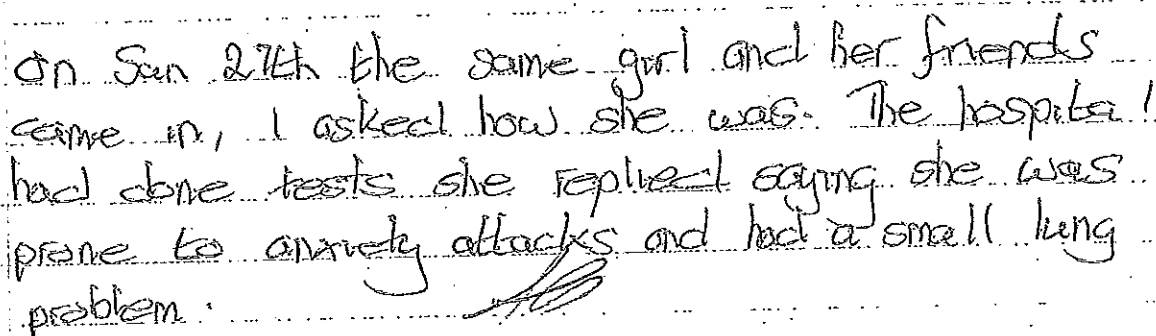 On Sun 27th the same girl and her friends
came in, I asked how she was. The hospital
had done tests she replied saying she was
prone to anxiety attacks and had a small lung
problem.